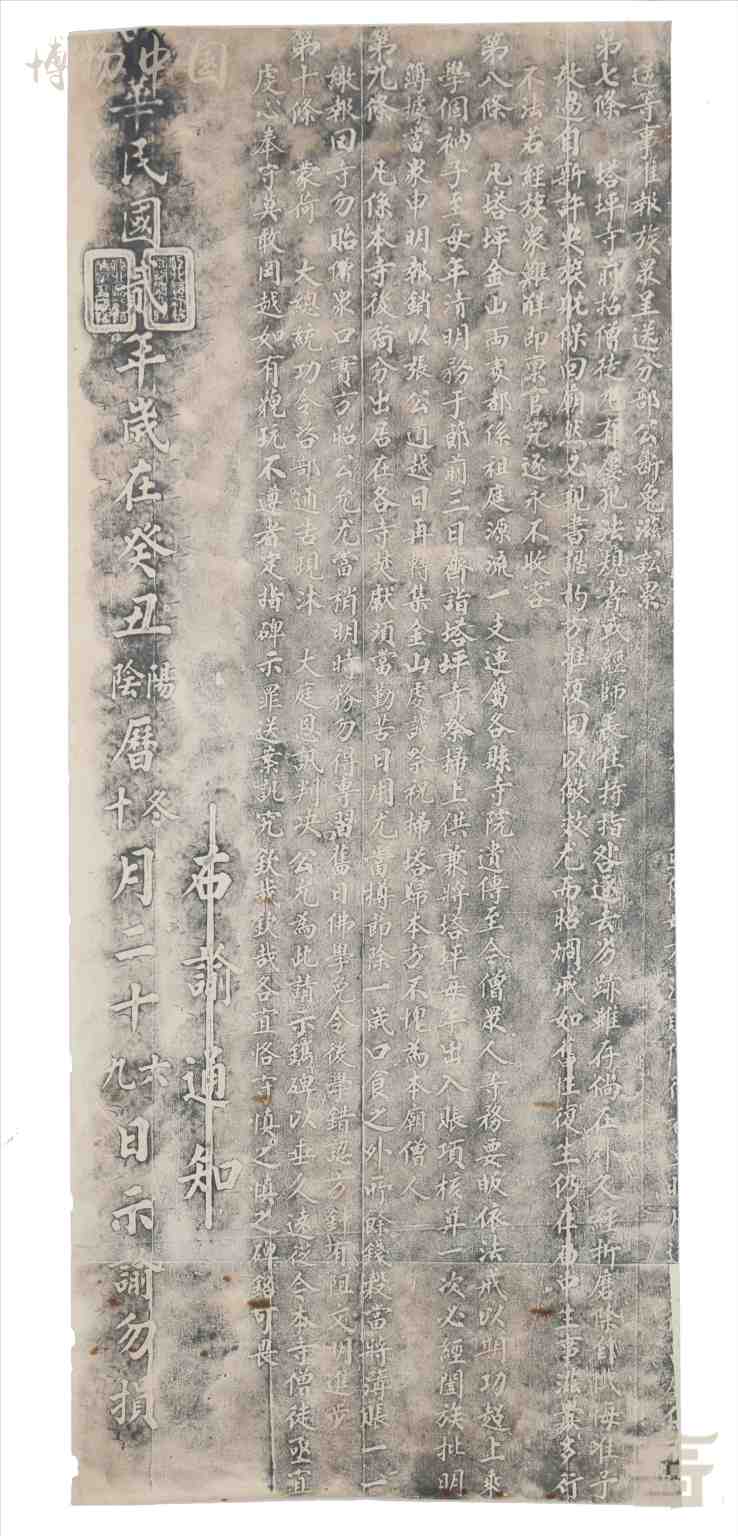 這等事准報族眾呈送分部公斷免滋訟累
第七條 塔坪寺前招僧徒 有 犯法規者或經師長住持指咎逐去劣跡雖存倘在外久經折磨除卸懺悔准予
改過自新許央族眾保回廟然必親書 約方准復回以儆效尤而昭烱戒如舊性復生仍在廟中生事 多行
不法若經族眾難解即稟官究逐永不收容
第八條 凡塔坪金山兩 都係祖庭源流一支連屬各縣寺院遺傳至今僧眾人等務要皈依法戒以期功超上乘
學個衲子至每年清明務于節前三日齊詣塔坪寺祭掃上供兼將塔坪每年出入賬項核算一次必經闔族批明
簿據當眾申明報銷以張公道越日再轉集金山虔誠祭祝掃塔歸本方不愧為本廟僧人
第九條 凡係本寺後裔分出居在各寺焚獻須當勤苦日用尤當撙節除一歲口食之外所餘錢穀當將簿賬一一
繳報回寺勿貽僧眾口實方昭公允尤當稍明時務勿得專習舊日佛學免令後學錯認方針有阻文明進步
第十條 蒙荷 大總統功令咨部通古現沐 大庭恩訊判決 公允為此請示鐫碑以垂久遠從今本寺僧徒亟宜
虔心奉守莫敢罔越如有藐玩不遵者定指碑示罪送案訊究欽哉欽哉各宜恪守慎之慎之碑鑑可畏
布諭通知
華民國貳年歲在癸丑陽陰曆冬十月二十六九日示諭勿損
博物中国